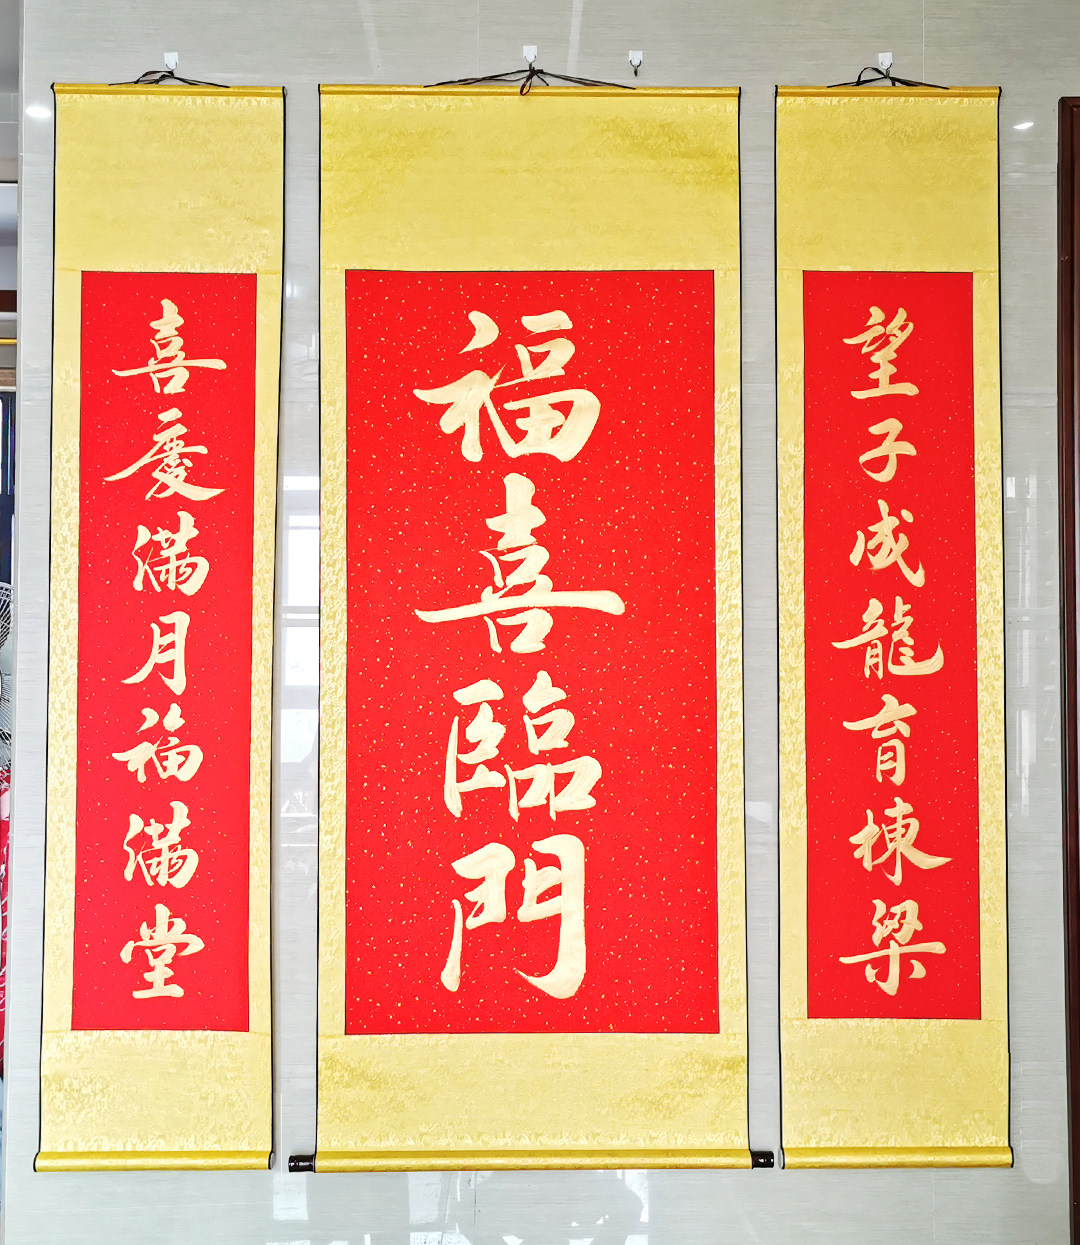 望子成龍育棟梁
福喜臨門
喜慶滿月福滿堂